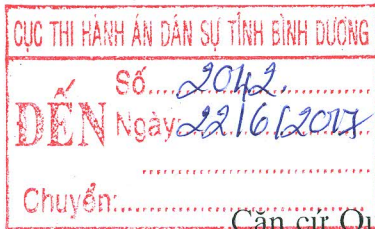 CỤC THI HÀNH ÁN DÂN SỰ TỈNH BÌNH DƯƠNG
ĐẾN
Số.....2042.
Ngày:22/6/2017
Chuyển:
Căn cứ